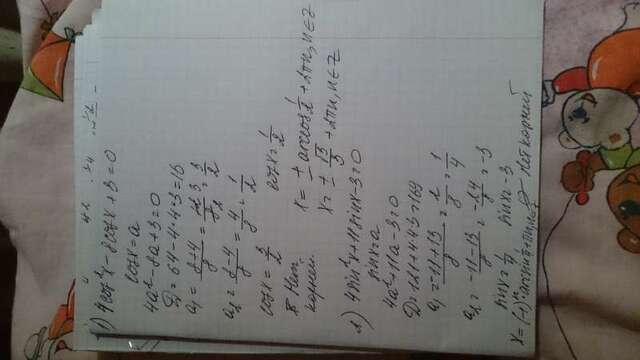 1) 4cos²x - 8cosx + 3 = 0
cosx = a
4a² - 8a + 3 = 0
D = 64 - 4·4·3 = 16
a₁ = 8+4/8 = 12/8 = 3/2
a₂ = 8-4/8 = 4/8 = 1/2
cosx = 3/2    cosx = 1/2
Нет    x = ± arccos 1/2 + 2πn, n∈Z
корней.    x = ± π/3 + 2πn, n∈Z
2) 4sin²x + 11sinx - 3 = 0
sinx = a
4a² - 11a - 3 = 0
D = 121 + 4·4·3 = 169
a₁ = -11+13/8 = 2/8 = 1/4
a₂ = -11-13/8 = -24/8 = -3
sinx = 1/4    sinx = -3
x = (-1)ⁿ arcsin 1/4 + πn, n∈Z    Нет корней